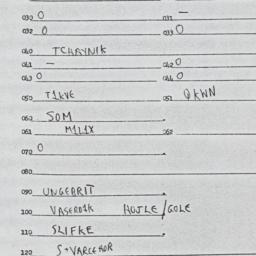 030 O 031 —
032 O 033 O
040 TCHAYNIK
041 — 042 O
043 O 044 O
050 T1KVE 051 QKWN
060 SOM
061 M1L1X 062
070 O
080
090 UNGEBRIT
100 VASERD1K HOJLE/GOLE
110 SLIFKE
120